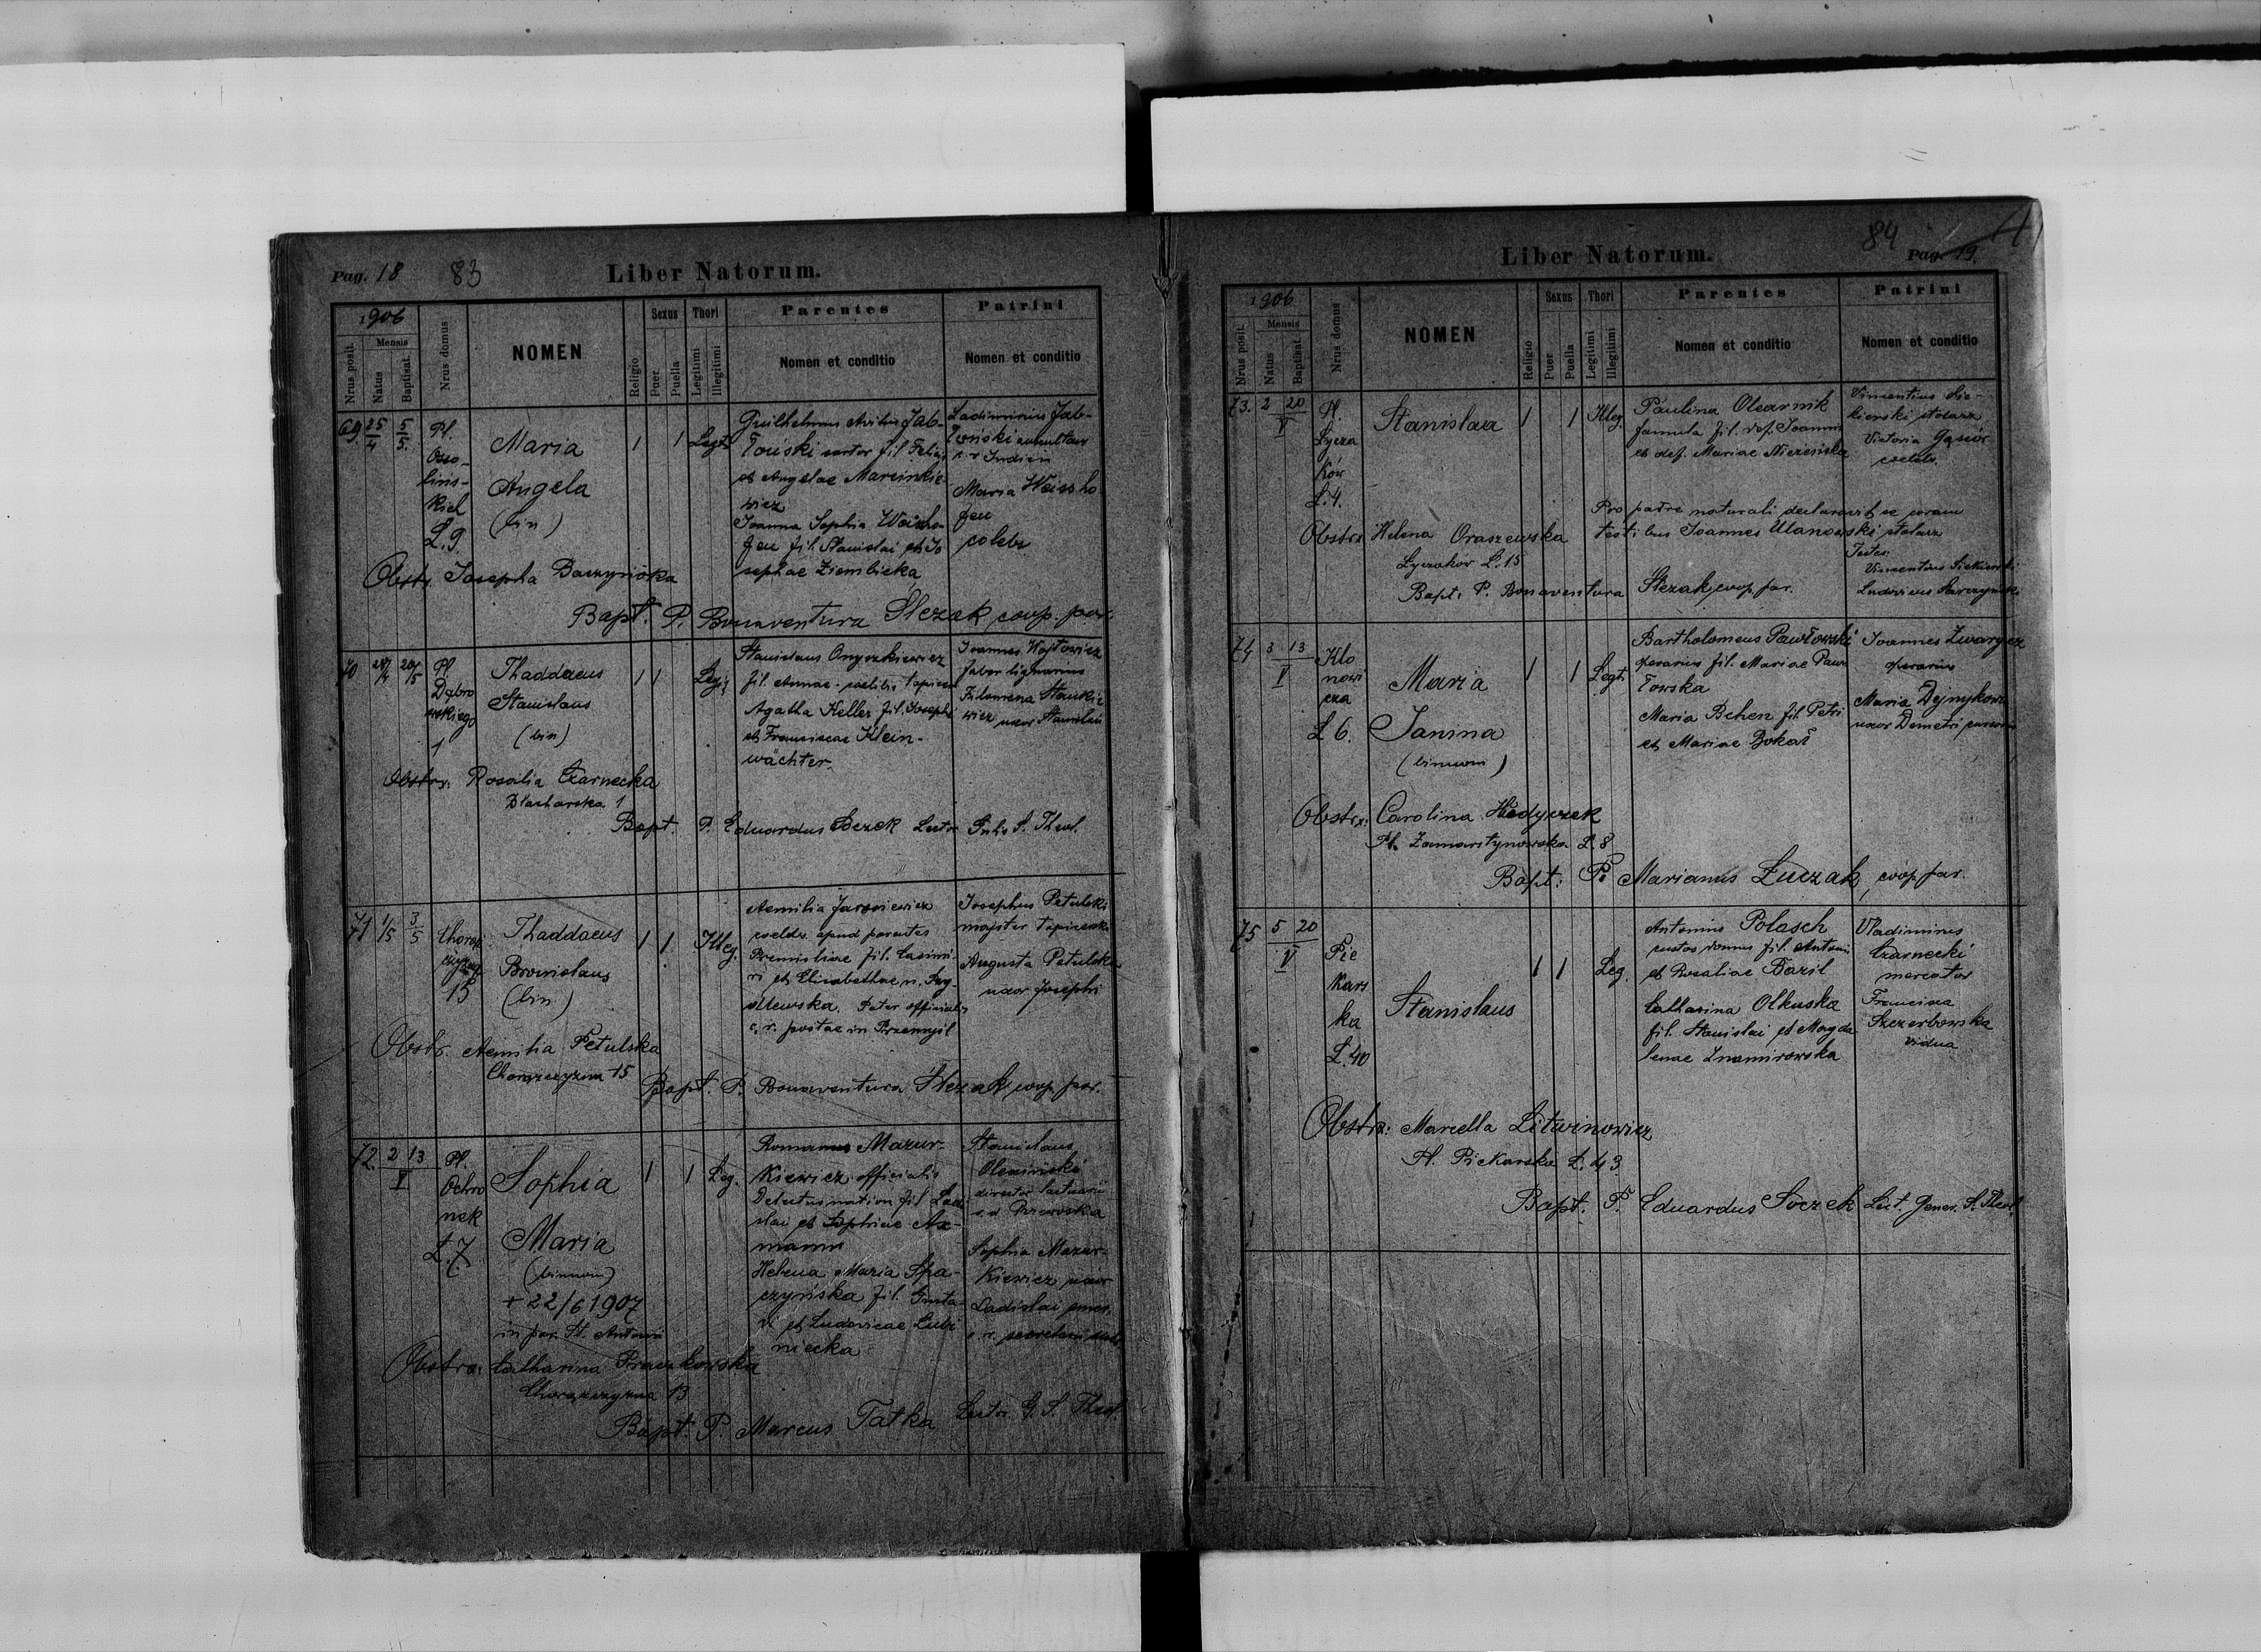 Pag. 18 83 Liber Natorum.
1906
Nrus posit.
Mensis
Natus
Baptisat.
Nrus domus
NOMEN
Religio
Sexus
Puer
Puella
Thori
Legitimi
Illegitimi
Parentes
Nomen et conditio
Patrini
Nomen et conditio
69. 25/4 5/5.
Pl.
Osso-
lins-
kich
L. 9.
Maria
Angela
(bin)
1 1 Legt.
Guilhelmus Jab-
łoński sartor fil. Felicis
et Angelae Marcinkie-
wicz
Joanna Sophia Weissho-
fen fil. Stanislai et Jo
sephae Ziembicka
Ladimirius Jab-
łoński auscultans
c. r. Judicii
Maria Weissho
fen
coelebs
Obstr. Josepha Baczyńska
Bapt. P. Bonaventura Stezak coop. par.
70 28/4 20/5
Pl.
Dąbro
wskiego
1
Thaddaeus
Stanislaus
(bin)
1 1 Legt.
Stanislaus Onyszkiewicz
fil. Annae coelibis
Agatha Keller fil. Josephi
et Franciscae Klein-
wächter.
Joannes Wojtowicz
faber lignarius
Filomena Stankie
wicz uxor Stanislai
Obstrx: Rosalia Czarnecka
Blacharska 1
Bapt. P. Eduardus Lector S. Theol.
71 1/5 3/5
Chorąż
czyzny
15
Thaddaeus
Bronislaus
(bin)
1 1 Illeg.
Aemilia Jarosiewicz
coelebs apud parentes
Premisliae fil. Casimi-
ri et Elisabethae n.
Pater officialis
c. r. postae in Przemyśl
Josephus Petulski
majster tapicerski
Augusta Petulska
uxor Josephi
Obstr. Aemilia Petulska
Chorążczyzna 15
Bapt. P. Bonaventura Stezak coop. par.
72. 2 13
V
Pl.
Ochro
nek
L. 7
Sophia
Maria
(binnom)
+ 22/6 1907
in par. St. Antonii
1 1 Leg.
Romanus Mazur-
kiewicz officialis
fil. Ladi
slai et Sophiae Ax-
mann
Helena Maria Spa-
czyńska fil. Gusta-
vi et Ludovicae Lubi
niecka
Stanislaus
director
Sophia Mazur-
kiewicz uxor
Ladislai emer.
c. r.
Obstrx: Catharina Praczkowska
Chorążczyzna 13
Bapt. P. Marcus Tatka Lector G. S. Theol.
84 Liber Natorum. Pag. 19.
1906
Nrus posit.
Mensis
Natus
Baptisat.
Nrus domus
NOMEN
Religio
Sexus
Puer
Puella
Thori
Legitimi
Illegitimi
Parentes
Nomen et conditio
Patrini
Nomen et conditio
73. 2 20
V
Pl.
Łycza
ków
L. 4.
Stanislaa
1 1 Illeg.
Paulina Olearnik
famula fil. def. Joannis
et def. Mariae Niezeńska
Vincentius Sie-
kierski stolarz
Victoria Gąsiór
coelebs.
Pro patre naturali declaravit se coram
testibus Joannes Ulanowski stolarz
Testes:
Vincentius Siekierski
Ludovicus
Obstrx Helena Oraszewska
Łyczaków L. 15
Bapt. P. Bonaventura Stezak, coop. par.
74 3 13
V
Klo
nowi
cza
L 6.
Maria
Janina
(binnom)
1 1 Legt.
Bartholomeus Pawłowski
operarius fil. Mariae Paw
łowska
Maria Behen fil. Petri
et Mariae Bokał
Joannes Zwarycz
operarius
Maria
uxor Demetri
Obstrx: Carolina Hedyczek
Pl. Zamarstynowska L. 8
Bapt: P. Marianus Łuczak, coop. par.
75 5 20
V
Pie
kars
ka
L. 40
Stanislaus
1 1 Leg.
Antonius Polasch
custos domus fil. Antoni
et Rosaliae Bazil
Catharina Olkuska
fil. Stanislai et Magda
lenae Znamirowska
Vladimirus
Czarnecki
mercator
Francisca
Szczerbowska
vidua
Obstrx: Marcella Litwinowicz
Pl. Piekarska L. 43
Bapt. P. Eduardus Lect. Gener. S. Theol.